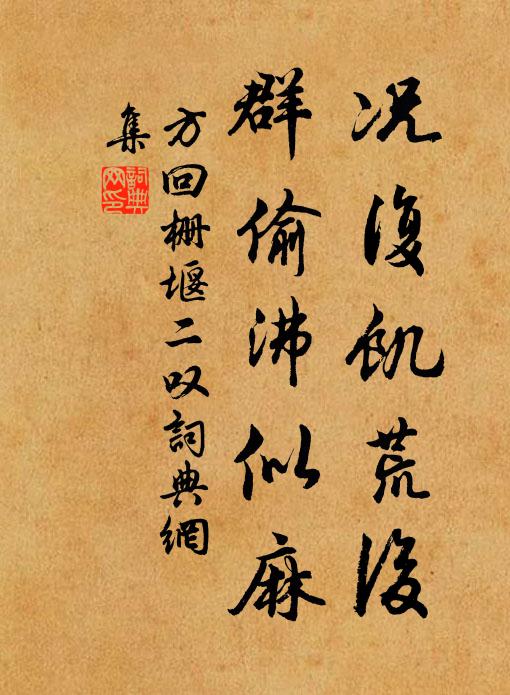 况復飢荒後
群偷沸似麻
方回栅堰二叹詞典網
集
詞典網印